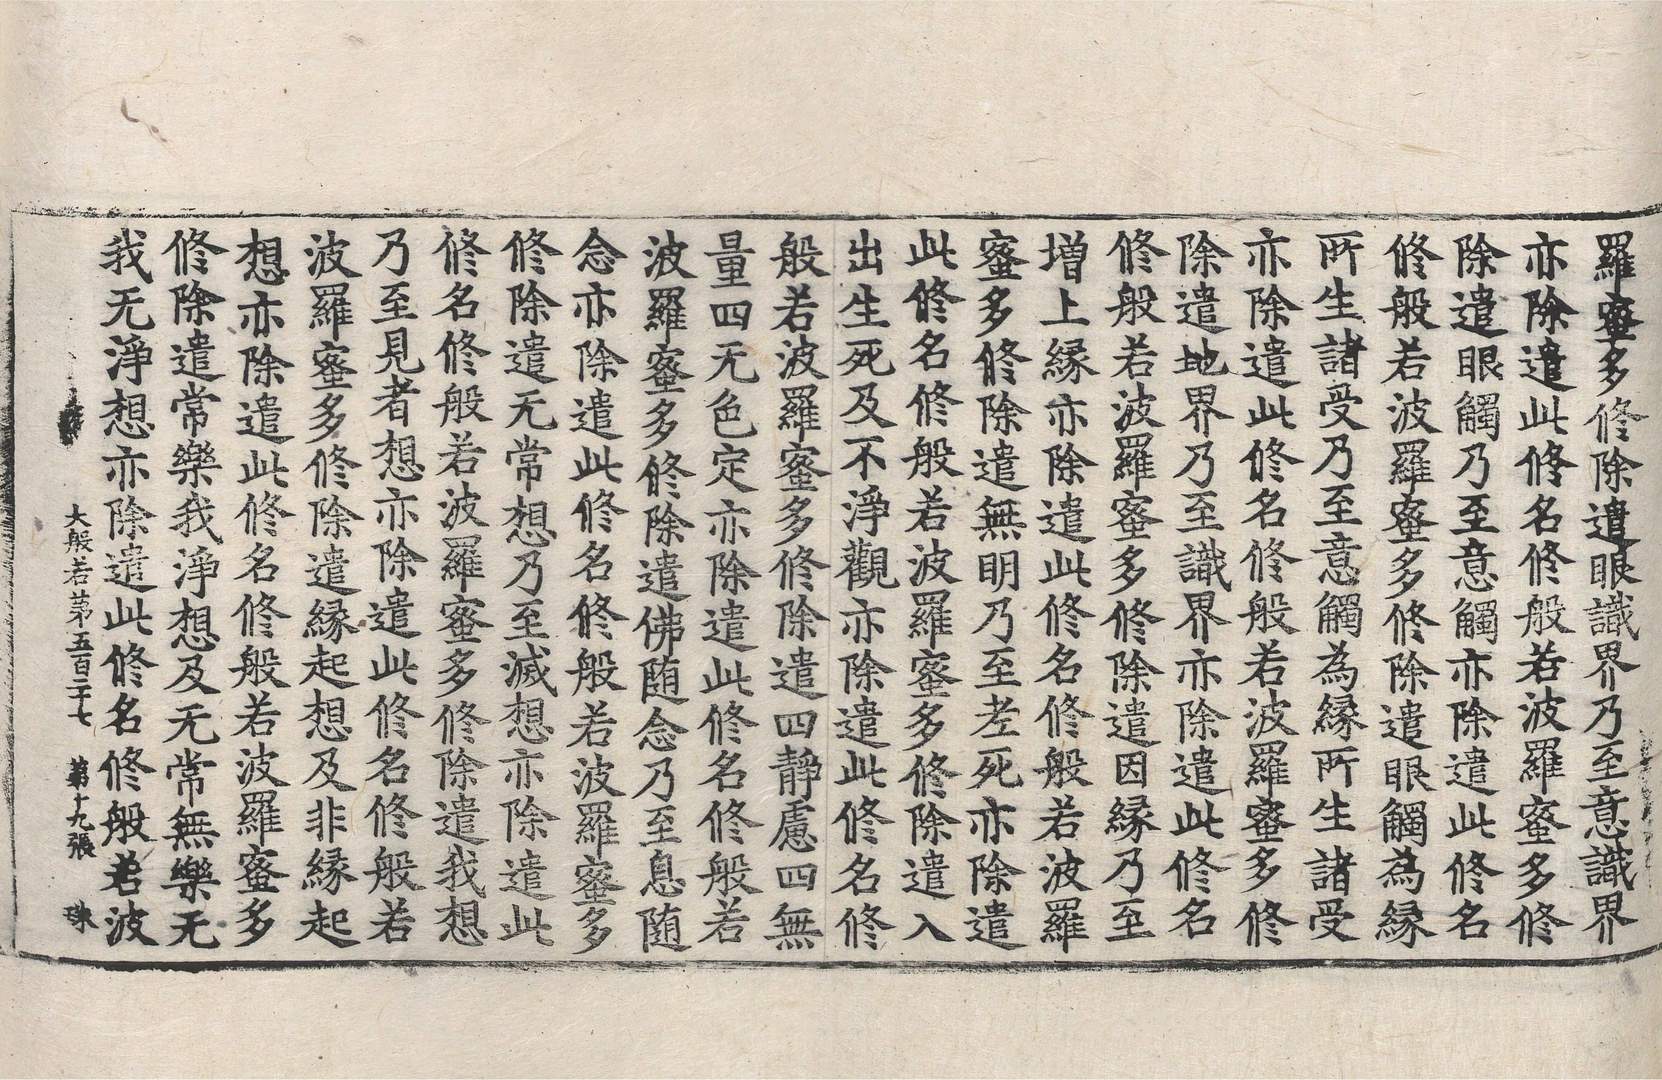 羅蜜多修除遣眼識界乃至意識界
亦除遣此修名修般若波羅蜜多修
除遣眼觸乃至意觸亦除遣此修名
修般若波羅蜜多修除遣眼觸為緣
所生諸受乃至意觸為緣所生諸受
亦除遣此修名修般若波羅蜜多修
除遣地界乃至識界亦除遣此修名
修般若波羅蜜多修除遣因緣乃至
增上緣亦除遣此修名修般若波羅
蜜多修除遣無明乃至老死亦除遣
此修名修般若波羅蜜多修除遣入
出生死及不淨觀亦除遣此修名修
般若波羅蜜多修除遣四靜慮四無
量四无色定亦除遣此修名修般若
波羅蜜多修除遣佛随念乃至息随
念亦除遣此修名修般若波羅蜜多
修除遣无常想乃至滅想亦除遣此
修名修般若波羅蜜多修除遣我想
乃至見者想亦除遣此修名修般若
波羅蜜多修除遣緣起想及非緣起
想亦除遣此修名修般若波羅蜜多
修除遣常樂我淨想及无常無樂无
我无淨想亦除遣此修名修般若波
大般若第五百二十七 第十九張 珠